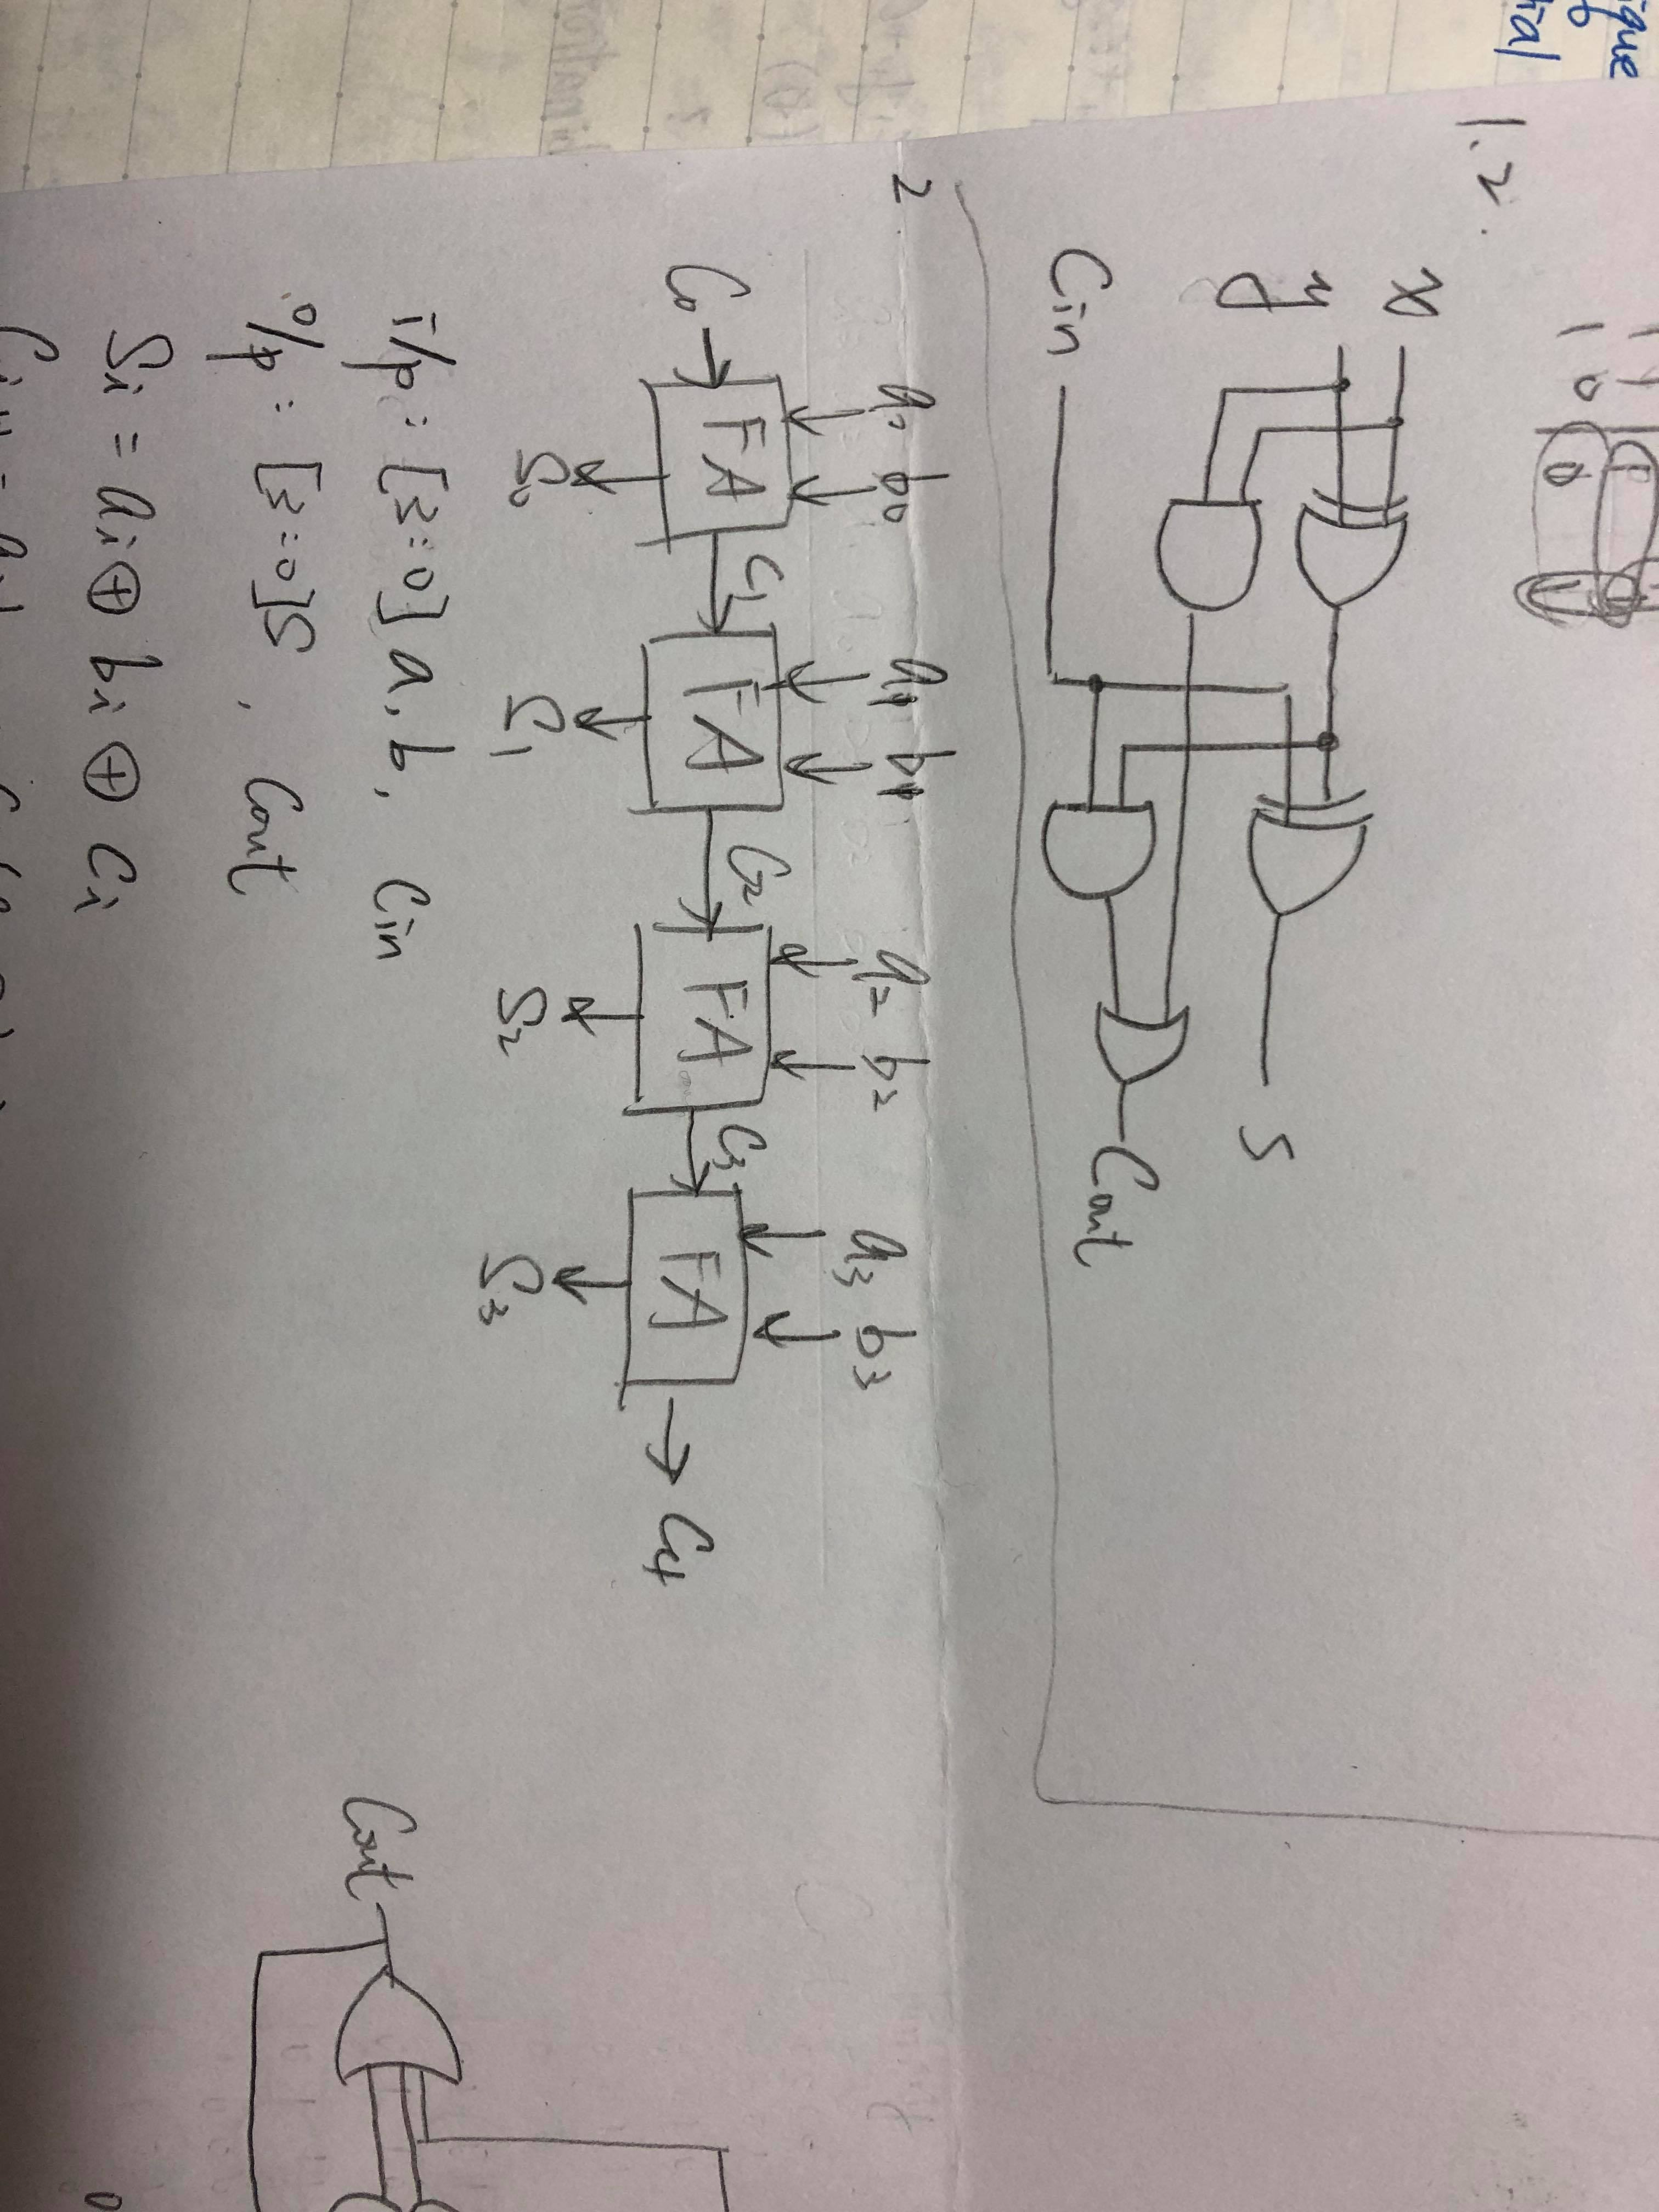 1.2.
x
y
Cin
S
Cout
2
a0 b0 a1 b1 a2 b2 a3 b3
C0 FA C1 FA C2 FA C3 FA C4
S0 S1 S2 S3
i/p : [3:0] a, b, Cin
o/p : [3:0] S, Cout
Si = ai ⊕ bi ⊕ Ci
Cout